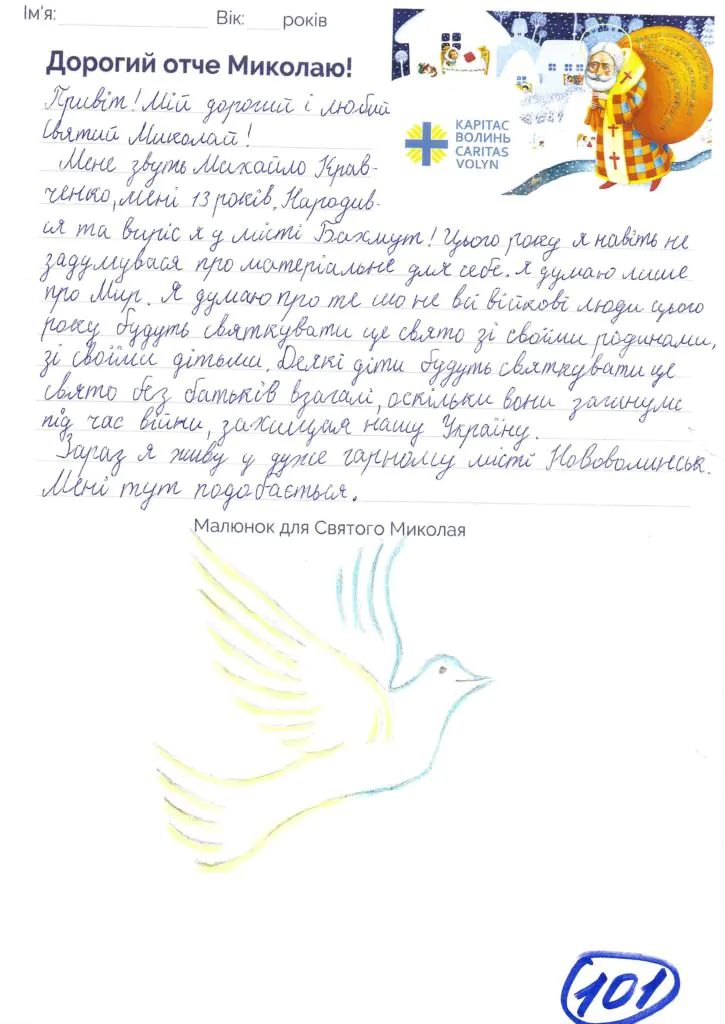 Ім'я: Вік: років
Дорогий отче Миколаю!
КАРІТАС
ВОЛИНЬ
CARITAS
VOLYN
Привіт! Мій дорогий і любий
Святий Миколай!
Мене звуть Михайло Крав-
ченко, мені 13 років. Народив-
ся та виріс я у місті Бахмут! Цього року я навіть не
задумувася про матеріальне для себе. Я думаю лише
про Мир. Я думаю про те що не всі війкові люди цього
року будуть святкувати це свято зі своїми родинами,
зі своїми дітьми. Деякі діти будуть святкувати це
свято без батьків взагалі, оскільки вони загинули
під час війни, захищая нашу Україну.
Зараз я живу у дуже гарному місті Нововолинськ.
Мені тут подобається.
Малюнок для Святого Миколая
101